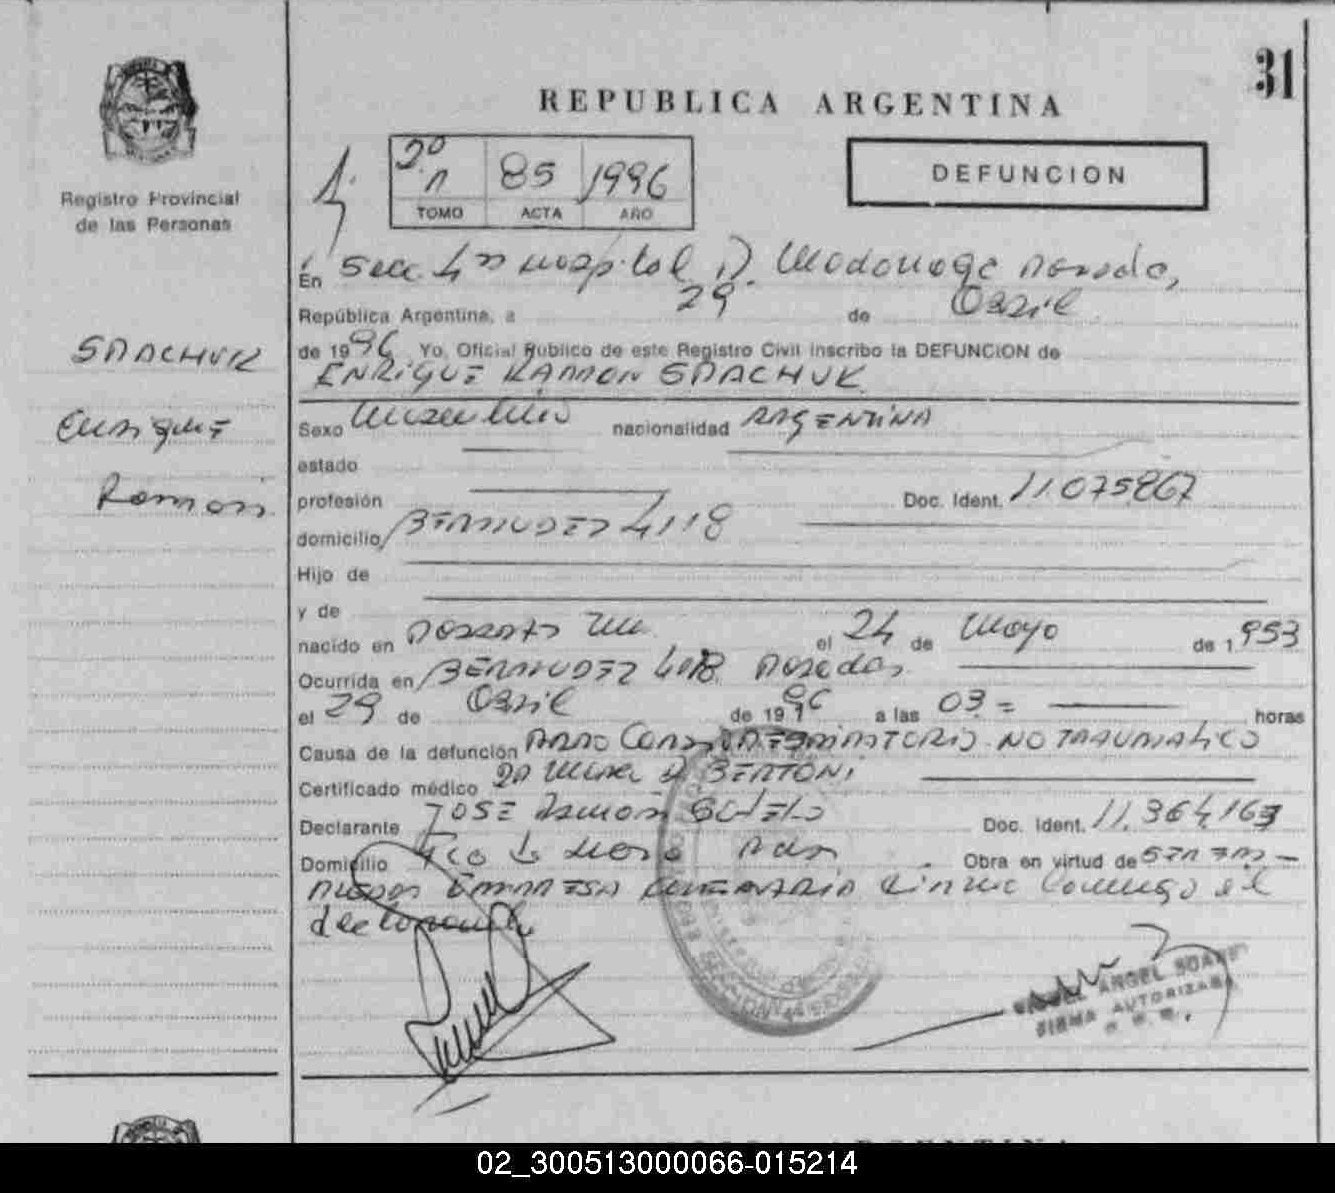 31
REPUBLICA ARGENTINA
Registro Provincial
de las Personas
2º 85 1996
TOMO ACTA AÑO
DEFUNCION
En Secc. 4ta Hospital D. Madariaga Posadas,
República Argentina, a 29 de Abril
de 1996 Yo, Oficial Público de este Registro Civil inscribo la DEFUNCION de
ENRIQUE RAMON SPACHUK
SPACHUK
Enrique
Ramon
Sexo Masculino nacionalidad ARGENTINA
estado
profesión Doc. Ident. 11075867
domicilio BERMUDEZ 4118
Hijo de
y de
nacido en POSADAS el 24 de Mayo de 1953
Ocurrida en BERMUDEZ 4118 Posadas
el 29 de Abril de 1996 a las 03 = horas
Causa de la defunción PARO CARDIORESPIRATORIO NO TRAUMATICO
Certificado médico BERTONI
Declarante JOSE Ramon SOTELO Doc. Ident. 11.364.163
Domicilio Obra en virtud de SER EM-
PLEADO EMPRESA FUNERARIA firma conmigo el
declarante
ANGEL
FIRMA AUTORIZADA
REPUBLICA ARGENTINA
02_300513000066-015214